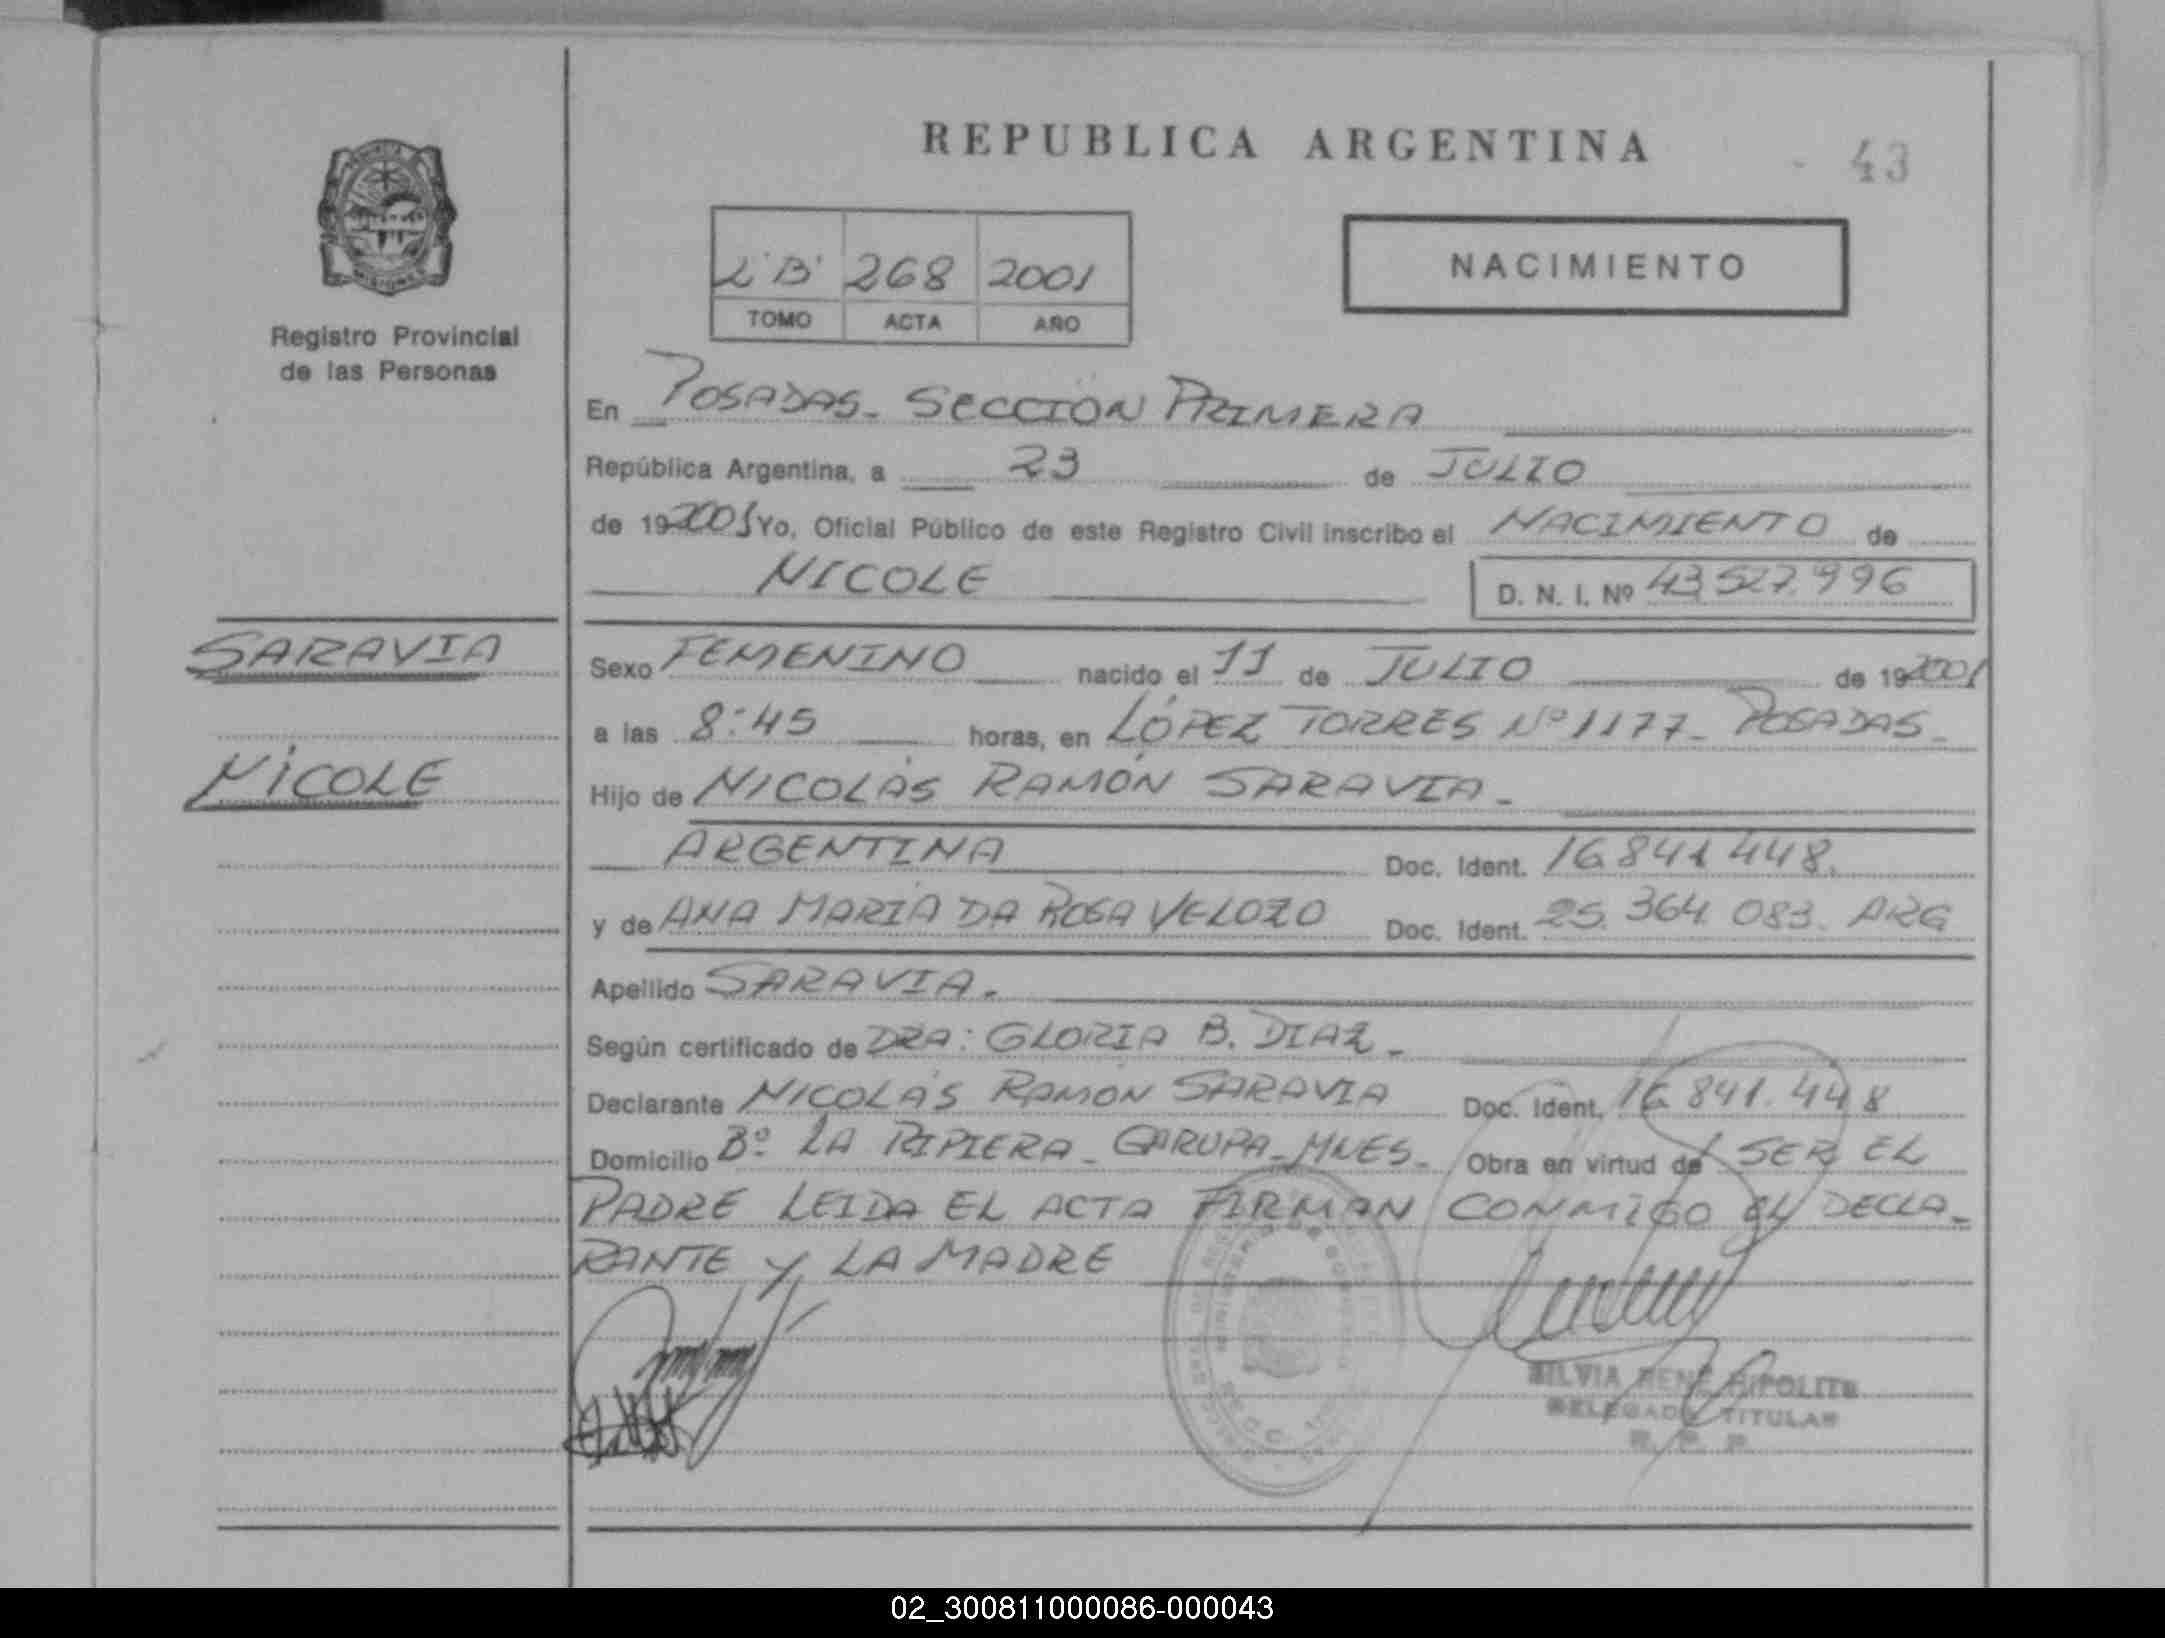 REPUBLICA ARGENTINA
43
Registro Provincial
de las Personas
2 'B' 268 2001
TOMO ACTA AÑO
NACIMIENTO
En POSADAS - SECCIÓN PRIMERA
República Argentina, a 23 de JULIO
de 192001 Yo, Oficial Público de este Registro Civil inscribo el NACIMIENTO de
NICOLE D. N. I. Nº 43.527.996
SARAVIA
NICOLE
Sexo FEMENINO nacido el 11 de JULIO de 192001
a las 8:45 horas, en LÓPEZ TORRES Nº 1177 - POSADAS -
Hijo de NICOLÁS RAMÓN SARAVIA -
ARGENTINA Doc. Ident. 16.841.448.
y de ANA MARÍA DA ROSA VELOZO Doc. Ident. 25.364.083. ARG
Apellido SARAVIA.
Según certificado de DRA: GLORIA B. DIAZ -
Declarante NICOLÁS RAMÓN SARAVIA Doc. Ident. 16.841.448
Domicilio Bº LA RIPIERA - GARUPA - MNES - Obra en virtud de SER EL
PADRE LEIDA EL ACTA FIRMAN CONMIGO EL DECLA-
RANTE Y LA MADRE
SILVIA RENE HIPOLITE
DELEGADA TITULAR
R. P. P.
02_300811000086-000043